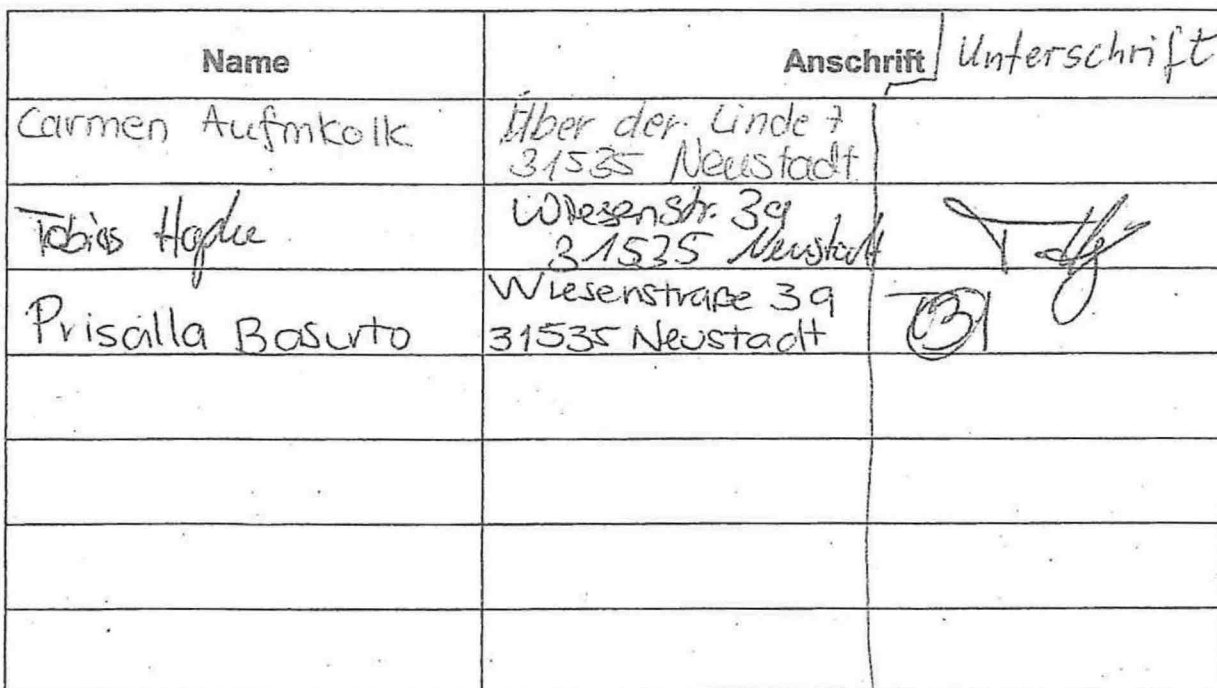 Name Anschrift Unterschrift
Carmen Aufmkolk Über der Linde 7
31535 Neustadt
Tobias Wiesenstr. 39
31535 Neustadt
Priscilla Basurto Wiesenstraße 39
31535 Neustadt